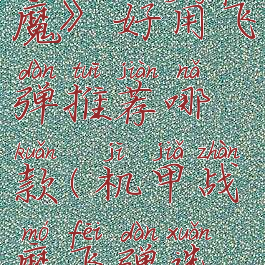 魔》好用飞
dàn tuī jiàn nǎ
弹推荐哪
kuǎn jī jiǎ zhàn
款(机甲战
mó fēi dàn xuǎn
魔飞弹选